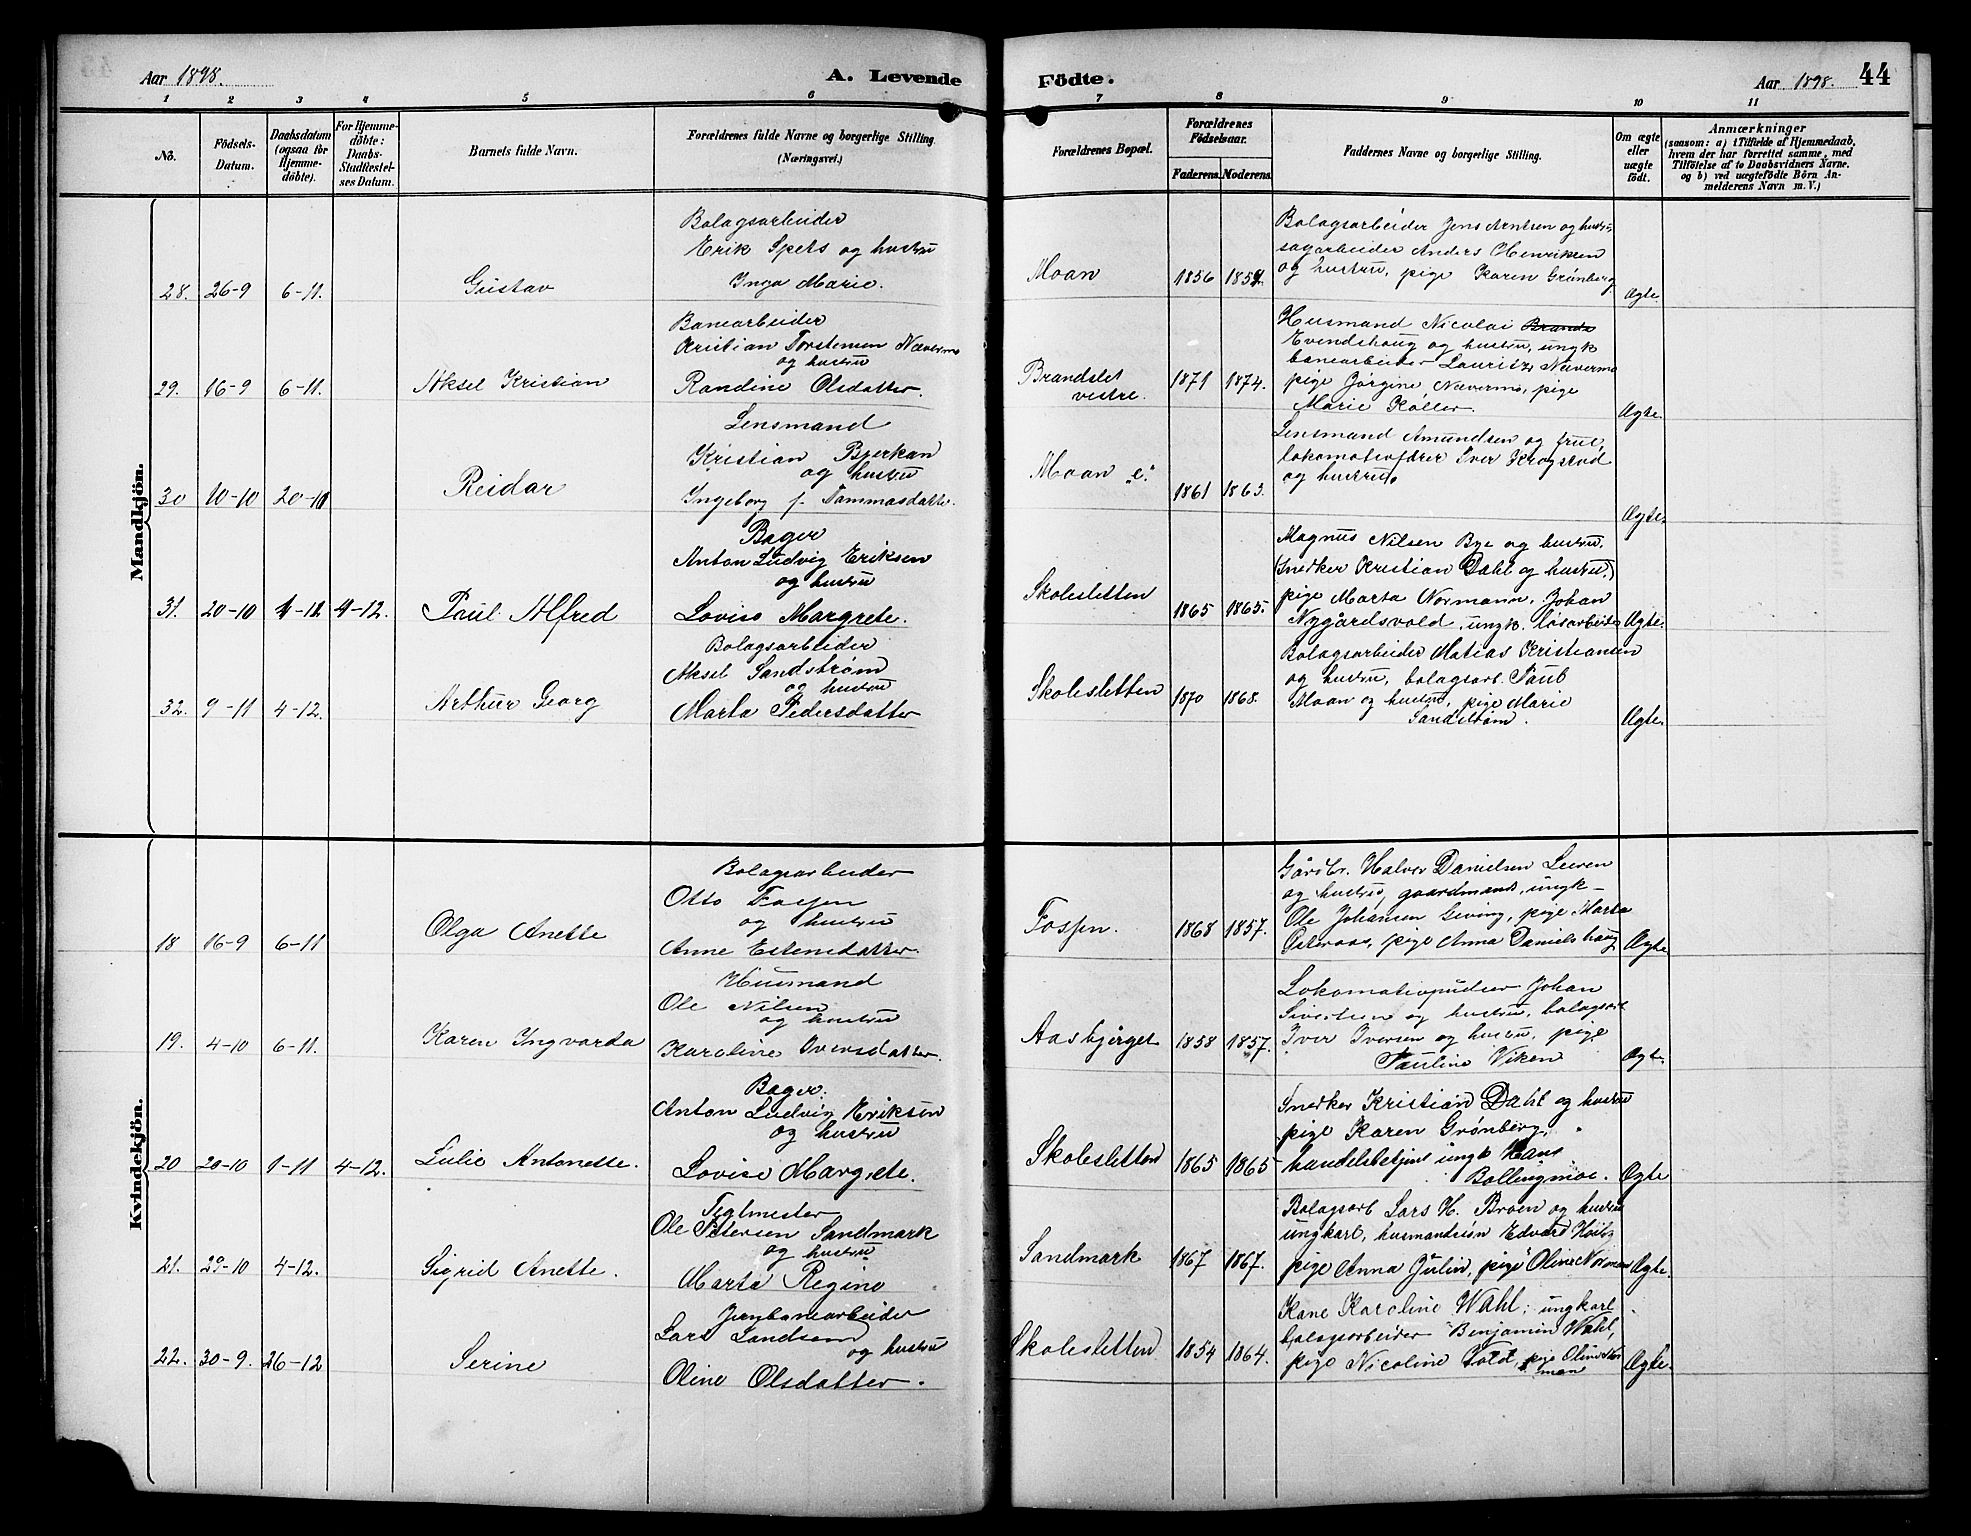 Aar 1898.
A. Levende
Födte.
Aar 1898. 44
1 2 3 4 5 6 7 8 9 10 11
No.
Födsels-Datum.
Daabsdatum (ogsaa for Hjemme-döbte).
For Hjemme-döbte: Daabs-Stadfæstel-ses Datum.
Barnets fulde Navn.
Forældrenes fulde Navne og borgerlige Stilling.
(Næringsvei.)
Forældrenes Bopæl.
Forældrenes Födselsaar.
Faderens. Moderens.
Faddernes Navne og borgerlige Stilling.
Om ægte eller uægte födt.
Anmærkninger
(saasom: a) i Tilfælde af Hjemmedaab,
hvem der har forrettet samme, med
Tilföielse af to Daabsvidners Navne.
og b) ved uægtefödte Börn An-
melderens Navn m. V.)
Mandkjön.
Bolagsarbeider
Erik Spets og hustru
Inga Marie.
28. 26-9 6-11. Gustav
Moan 1856
Bolagsarbeider Jens Arntsen og hustru
sagarbeider Anders Henriksen
og hustru, pige Karen Grønberg
Ægte.
Banearbeider
Kristian Torstensen Nævermo
og hustru
29. 16-9 6-11. Aksel Kristian Randine Olsdatter.
Brandslet
vestre.
1871 1874.
Husmand Nicolai
Evendshaug og hustru, ungk
banearbeider Lauritz Nævermo
pige Jørgine Nævermo, pige
Marie Køller.
Ægte.
Lensmand
Kristian Bjerkan
og hustru
30 10-10 20-11 Reidar Ingeborg f. Tammasdatter.
Moan "e." 1861 1863.
Lensmand Amundsen og frue,
lokomotivfører Iver Krogstad
og hustru
Ægte.
Bager
Anton Ludvig Eriksen
og hustru
31. 20-10 4-12. Paul Alfred Lovise Margrete.
Skolesletten 1865 1865.
Magnus Nilsen Bye og hustru.
(Snedker Kristian Dahl og hustru.)
pige Marta Normann, Johan
Nygårdsvold, ungk. løsarbeider
Ægte.
Bolagsarbeider
Aksel Sandstrøm
og hustru
32. 9-11 4-12. Arthur Georg Marta Pedersdatter
Skolesletten 1870 1868.
Bolagsarbeider Matias Kristiansen
og hustru, bolagsarb. Paul
Moan og hustru, pige Marie
Sandstrøm.
Ægte.
Kvindekjön.
Bolagsarbeider
Otto Fossen
og hustru
18 16-9 6-11 Olga Anette Anne Estensdatter.
1868 1857.
Gårdbr. Halvor Danielsen Leeren
og hustru, gaardmand, ungk-
Ole Johansen Geving, pige Marta
Østeraas, pige Anna Danielshaug
Ægte
Husmand
Ole Nilsen
og hustru
19. 4-10 6-11. Karen Ingvarda Karoline Iversdatter.
Aasbjørget 1858 1857.
Lokomotivpudser Johan
Sivertsen og hustru, bolagsarb
Iver Iversen og hustru, pige
Pauline Viken
Ægte.
Bager.
Anton Ludvig Eriksen
og hustru
20 20-10 1-11 4-12. Julie Antonette. Lovise Margrete.
Skolesletten 1865 1865
Snedker Kristian Dahl og hustru
pige Karen Grønberg,
handelsbetjent ungk Hans
Bollingmoe.
Ægte
Teglmester
Ole Petersen Sandmark
og hustru
21. 29-10 4-12. Sigrid Anette. Marta Regine
Sandmark 1867 1867.
Bolagsarb Lars H. Broen og hustru
ungkarl, husmandssøn Edvard
pige Anna Julin, pige Oline Normann
Ægte.
Jernbanearbeider
Lars Sandsem
og hustru
22. 30-9. 26-12 Serine Oline Olsdatter.
Skolesletten 1854 1864.
Kone Karoline Wahl, ungkarl
bolagsarbeider Benjamin Wahl,
pige Nicoline Told, pige Oline Nor
man
Ægte.